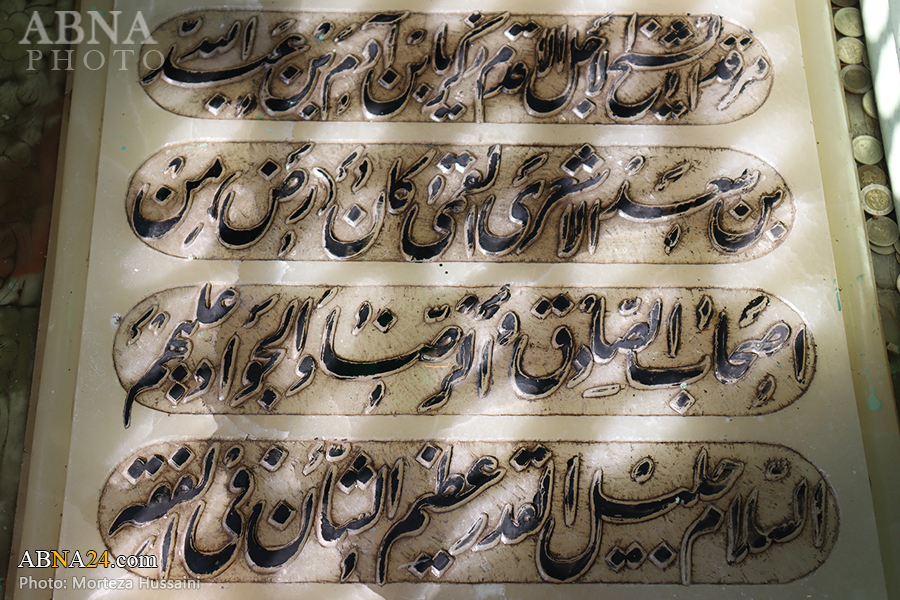 ABNA
PHOTO
مرقد الشیخ الاجل الاقدم زکریا بن آدم بن عبدالله
بن سعد الاشعری القمی کان رض من
اصحاب الصادق و الرضا و الجواد علیهم
السلام جلیل القدر عظیم الشأن فی الفقه
ABNA24.com
Photo: Morteza Hussaini